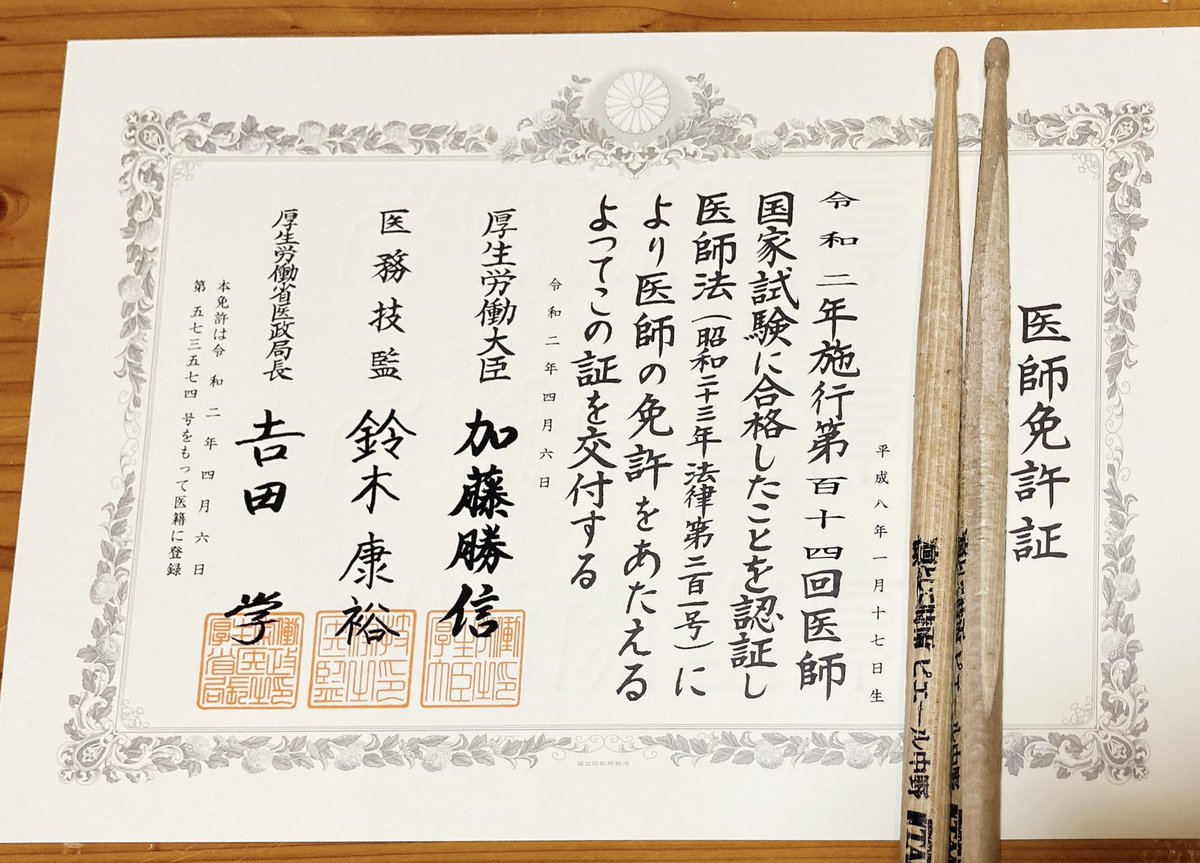 医師免許証
平成八年一月十七日生
令和二年施行第百十四回医師
国家試験に合格したことを認証し
医師法（昭和二十三年法律第二百一号）に
より医師の免許をあたえる
よつてこの証を交付する
令和二年四月六日
厚生労働大臣 加藤勝信
医務技監 鈴木康裕
厚生労働省医政局長 吉田 学
本免許は令和二年四月六日
第五七三五七四号をもって医籍に登録
国立印刷局製造
ピエール中野
TA